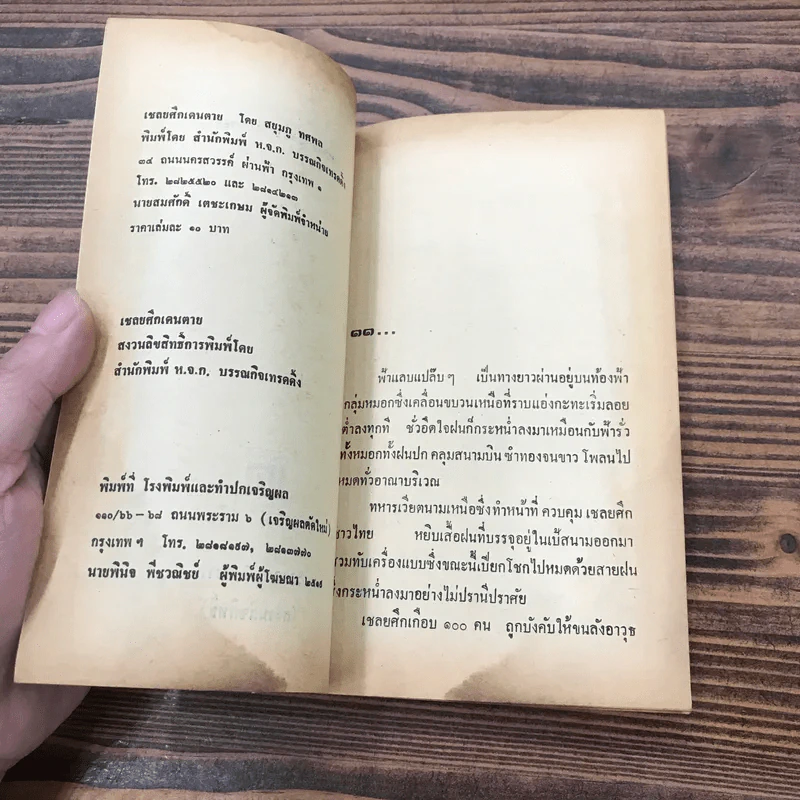 เชลยศึกเดนตาย โดย สยุมภู ทศพล
พิมพ์โดย สำนักพิมพ์ ห.จ.ก. บรรณกิจเทรดดิ้ง
๓๔ ถนนนครสวรรค์ ผ่านฟ้า กรุงเทพ ๑
โทร. ๒๘๒๕๕๒๐ และ ๒๘๑๔๒๑๓
นายสมศักดิ์ เตชะเกษม ผู้จัดพิมพ์จำหน่าย
ราคาเล่มละ ๑๐ บาท
เชลยศึกเดนตาย
สงวนลิขสิทธิ์การพิมพ์โดย
สำนักพิมพ์ ห.จ.ก. บรรณกิจเทรดดิ้ง
พิมพ์ที่ โรงพิมพ์และทำปกเจริญผล
๑๑๐/๖๖-๖๘ ถนนพระราม ๖ (เจริญผลตัดใหม่)
กรุงเทพฯ โทร. ๒๘๑๘๑๕๗, ๒๘๑๓๗๗๐
นายพินิจ พืชวณิชย์ ผู้พิมพ์ผู้โฆษณา
๑๑...
ฟ้าแลบแปล๊บๆ เป็นทางยาวผ่านอยู่บนท้องฟ้า
กลุ่มหมอกซึ่งเคลื่อนขบวนเหนือที่ราบแอ่งกะทะเริ่มลอย
ต่ำลงทุกที ชั่วอึดใจฝนก็กระหน่ำลงมาเหมือนกับฟ้ารั่ว
ทั้งหมอกทั้งฝนปก คลุมสนามบิน ซำทองจนขาว โพลนไป
หมดทั่วอาณาบริเวณ
ทหารเวียตนามเหนือซึ่งทำหน้าที่ ควบคุม เชลยศึก
ชาวไทย หยิบเสื้อฝนที่บรรจุอยู่ในเป้สนามออกมา
สวมทับเครื่องแบบซึ่งขณะนี้เปียกโชกไปหมดด้วยสายฝน
ซึ่งกระหน่ำลงมาอย่างไม่ปรานีปราศัย
เชลยศึกเกือบ ๑๐๐ คน ถูกบังคับให้ขนลังอาวุธ